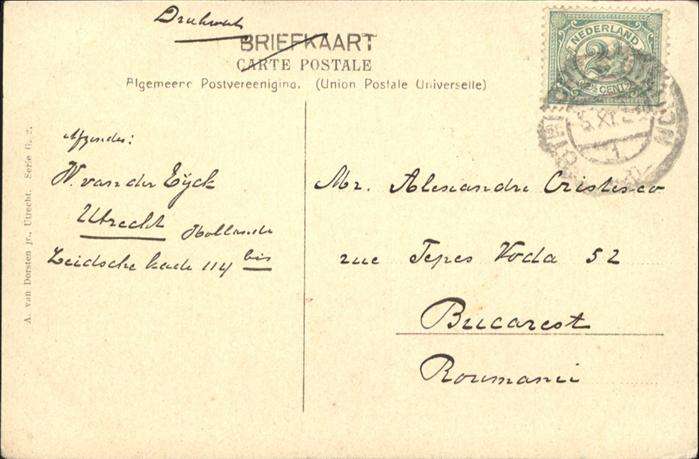 Drukwerk
BRIEFKAART
CARTE POSTALE
Algemeene Postvereeniging. (Union Postale Universelle)
NEDERLAND
2½
CENT
Afzender:
W. van der Eyck
Utrecht Hollande
Leidsche kade 114 bis
Mr. Alexandre Cristesco
rue Tepes Voda 52
Bucarest
Roumanie
A. van Dorsten jr., Utrecht. Serie G,